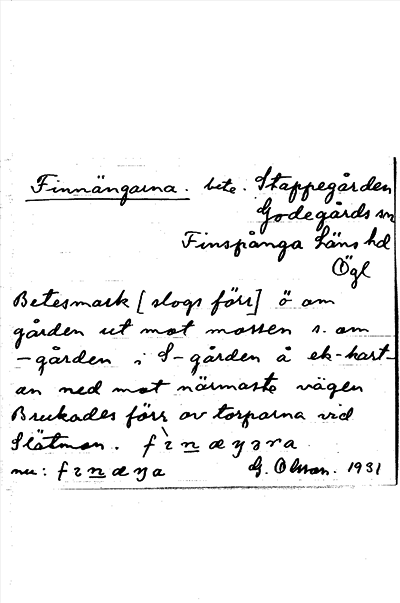 Finnängarna. bete. Stappegården
Godegårds sn
Finspånga läns hd
Ögl
Betesmark [slogs förr] ö om
gården ut mot mossen s. om
-gården i S-gården å ek-kart-
an ned mot närmaste vägen
Brukades förr av torparna vid
Slätmon. fìnæŋɜra
nu: fɩnæŋa G. Olsson. 1931